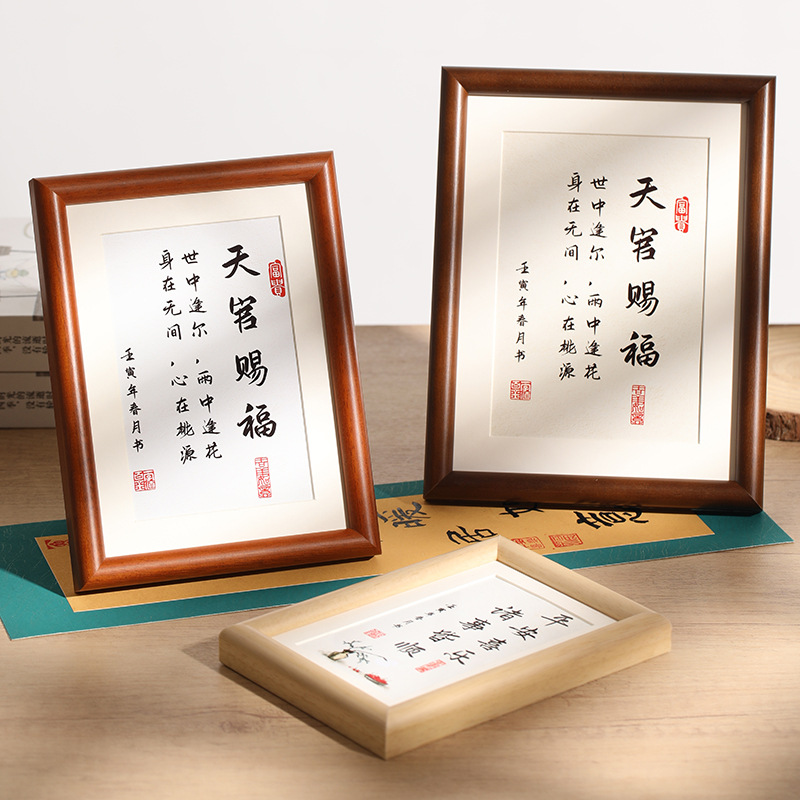 富貴
天官赐福
世中逢尔，雨中逢花
身在无间，心在桃源
壬寅年春月书
富貴
天官赐福
世中逢尔，雨中逢花
身在无间，心在桃源
壬寅年春月书
平安喜乐
诸事皆顺